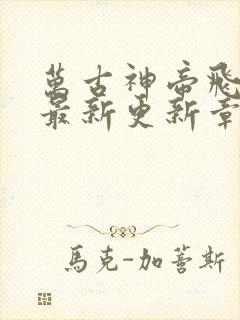 萬古神帝飛
最新更新章
馬克-加蓍斯